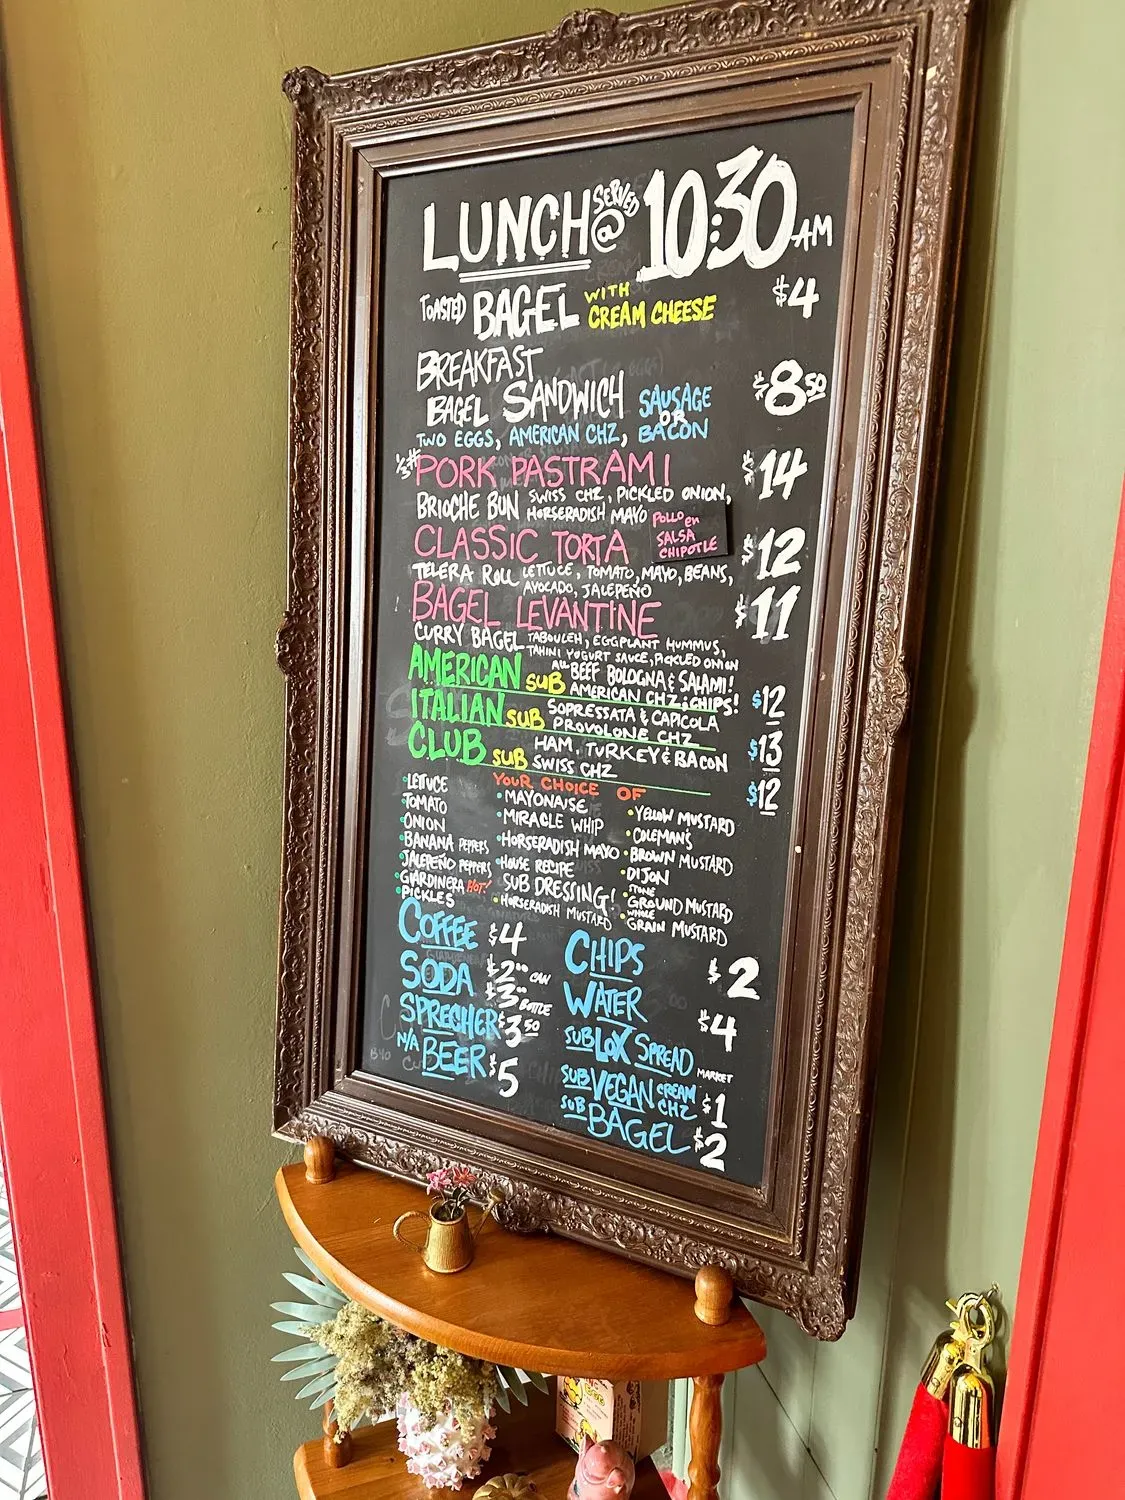 LUNCH SERVED @ 10:30 AM
TOASTED BAGEL WITH CREAM CHEESE $4
BREAKFAST
BAGEL SANDWICH SAUSAGE OR BACON $8.50
TWO EGGS, AMERICAN CHZ,
1/3# PORK PASTRAMI $14
BRIOCHE BUN SWISS CHZ, PICKLED ONION,
HORSERADISH MAYO
CLASSIC TORTA $12
POLLO en
SALSA
CHIPOTLE
TELERA ROLL LETTUCE, TOMATO, MAYO, BEANS,
AVOCADO, JALEPEÑO
BAGEL LEVANTINE $11
CURRY BAGEL TABOULEH, EGGPLANT HUMMUS,
TAHINI YOGURT SAUCE, PICKLED ONION
AMERICAN SUB ALL BEEF BOLOGNA & SALAMI!
AMERICAN CHZ & CHIPS! $12
ITALIAN SUB SOPRESSATA & CAPICOLA
PROVOLONE CHZ $13
CLUB SUB HAM, TURKEY & BACON
SWISS CHZ $12
YOUR CHOICE OF
• LETTUCE
• TOMATO
• ONION
• BANANA PEPPERS
• JALEPEÑO PEPPERS
• GIARDINERA HOT!
• PICKLES
• MAYONAISE
• MIRACLE WHIP
• HORSERADISH MAYO
• HOUSE RECIPE
SUB DRESSING!
• HORSERADISH MUSTARD
• YELLOW MUSTARD
• COLEMAN'S
• BROWN MUSTARD
• DIJON
• STONE GROUND MUSTARD
• WHOLE GRAIN MUSTARD
COFFEE $4
SODA $2.00 CAN
$3.00 BOTTLE
SPRECHER $3.50
N/A BEER $5
CHIPS $2
WATER $4
SUB LOX SPREAD MARKET
SUB VEGAN CREAM CHZ $1
SUB BAGEL $2